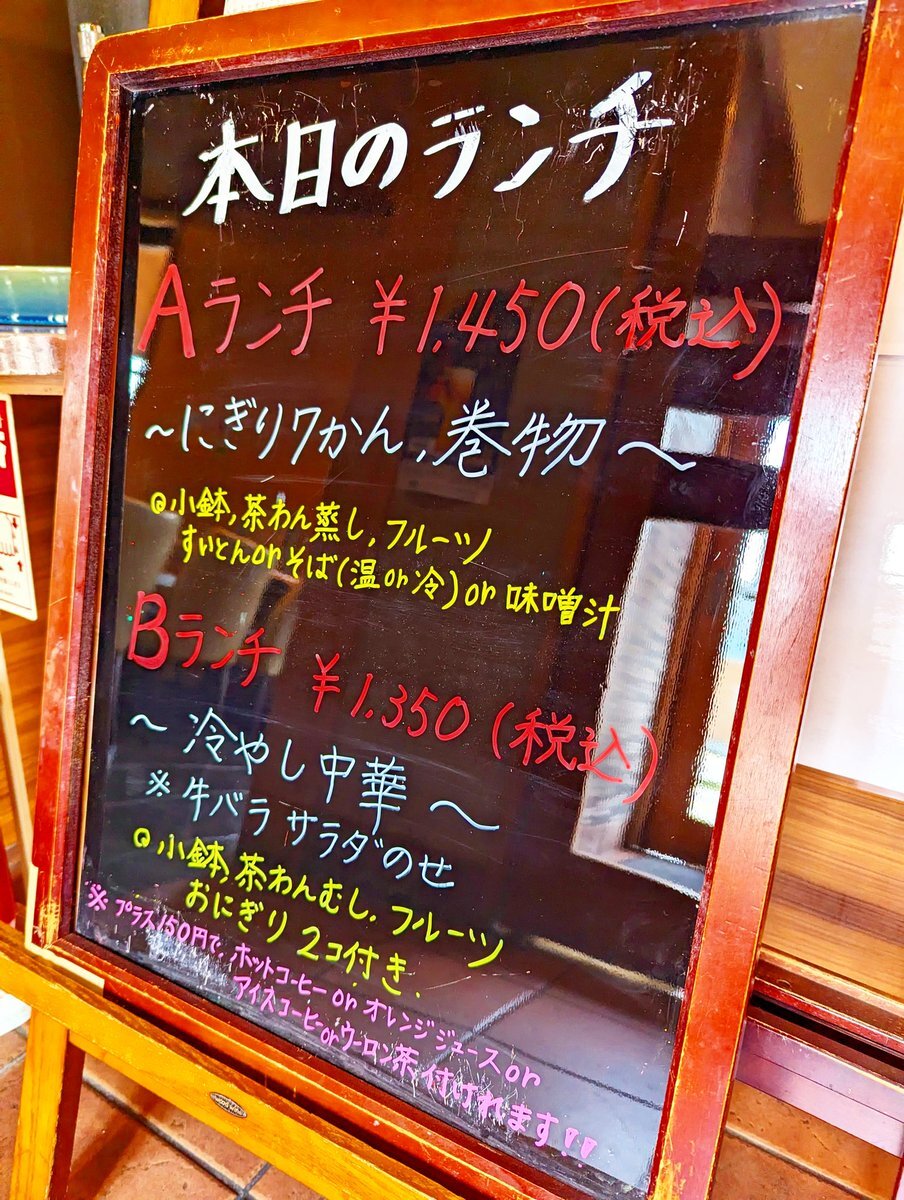 本日のランチ
Aランチ ¥1,450(税込)
～にぎり7かん,巻物～
◎小鉢,茶わん蒸し,フルーツ
すいとんorそば(温or冷)or味噌汁
Bランチ ¥1,350(税込)
～冷やし中華～
※牛バラサラダのせ
◎小鉢,茶わんむし,フルーツ
おにぎり2コ付き.
※プラス150円で、ホットコーヒーorオレンジジュースor
アイスコーヒーorウーロン茶付けれます!!